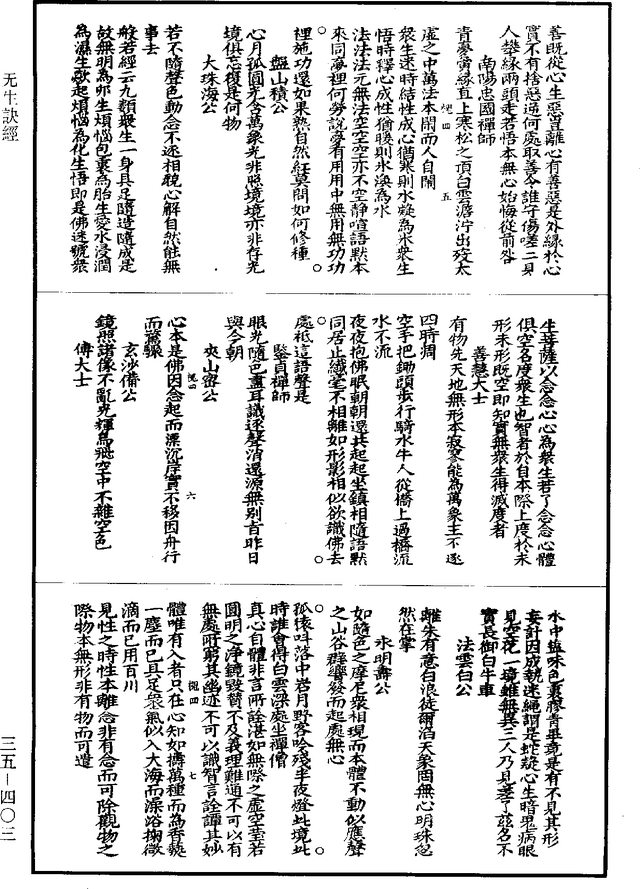 善既從心生惡豈離心有善惡是外緣於心
實不有捨惡送何處取善令誰守傷嗟二見
人攀緣兩頭走若悟本無心始悔從前咎
南陽忠國禪師
青蘿夤緣直上寒松之頂白雲澹泞出沒太
虛之中萬法本閑而人自鬧
五
眾生迷時結性成心猶寒則水凝為氷眾生
悟時釋心成性猶暖則氷渙為水
法法法元無法空空空亦不空靜喧語默本
來同夢裡何勞說夢有用用中無用無功功
裡施功還如果熟自然紅莫問如何修種
盤山積公
心月孤圓光含萬象光非照境境亦非存光
境俱忘復是何物
大珠海公
若不隨聲色動念不逐相貌心解自然能無
事去
般若經云九類眾生一身具足隨造隨成是
故無明為卵生煩惱包裹為胎生愛水浸潤
為濕生歘起煩惱為化生悟即是佛迷號眾
生菩薩以念念心心為眾生若了念念心體
俱空名度眾生也智者於自本際上度於未
形未形既空即知實無眾生得滅度者
善慧大士
有物先天地無形本寂寥能為萬象主不逐
四時凋
空手把鋤頭步行騎水牛人從橋上過橋流
水不流
夜夜抱佛眠朝朝還共起起坐鎮相隨語默
同居止纖毫不相離如形影相似欲識佛去
處祗這語聲是
鑒貞禪師
眼光隨色盡耳識逐聲消還源無別旨昨日
與今朝
夾山密公
六
心本是佛因念起而漂沉岸實不移因舟行
而驚驟
玄沙備公
鏡照諸像不亂光輝鳥飛空中不雜空色
傅大士
水中鹽味色裏膠青畢竟是有不見其形
妄計因成執迷繩謂是蛇疑心生暗鬼病眼
見空花一境雖無異三人乃見差了茲名不
實長御白牛車
法雲白公
離朱有意白浪徒爾滔天象罔無心明珠忽
然在掌
永明壽公
如隨色之摩尼眾相現而本體不動似應聲
之山谷群響發而起處無心
孤猿叫落中岩月野客吟殘半夜燈此境此
時誰會得白雲深處坐禪僧
真心自體非言所詮湛如無際之虛空瑩若
圓明之淨鏡毀贊不及義理難通不可以有
無處所窮其幽迹不可以識智言詮譚其妙
七
體唯有入者只在心知如擣萬種而為香爇
一塵而已具足眾氣似入大海而澡浴掬微
滴而已用百川
見性之時性本離念非有念而可除觀物之
際物本無形非有物而可遣
无生訣經
三五－四〇三